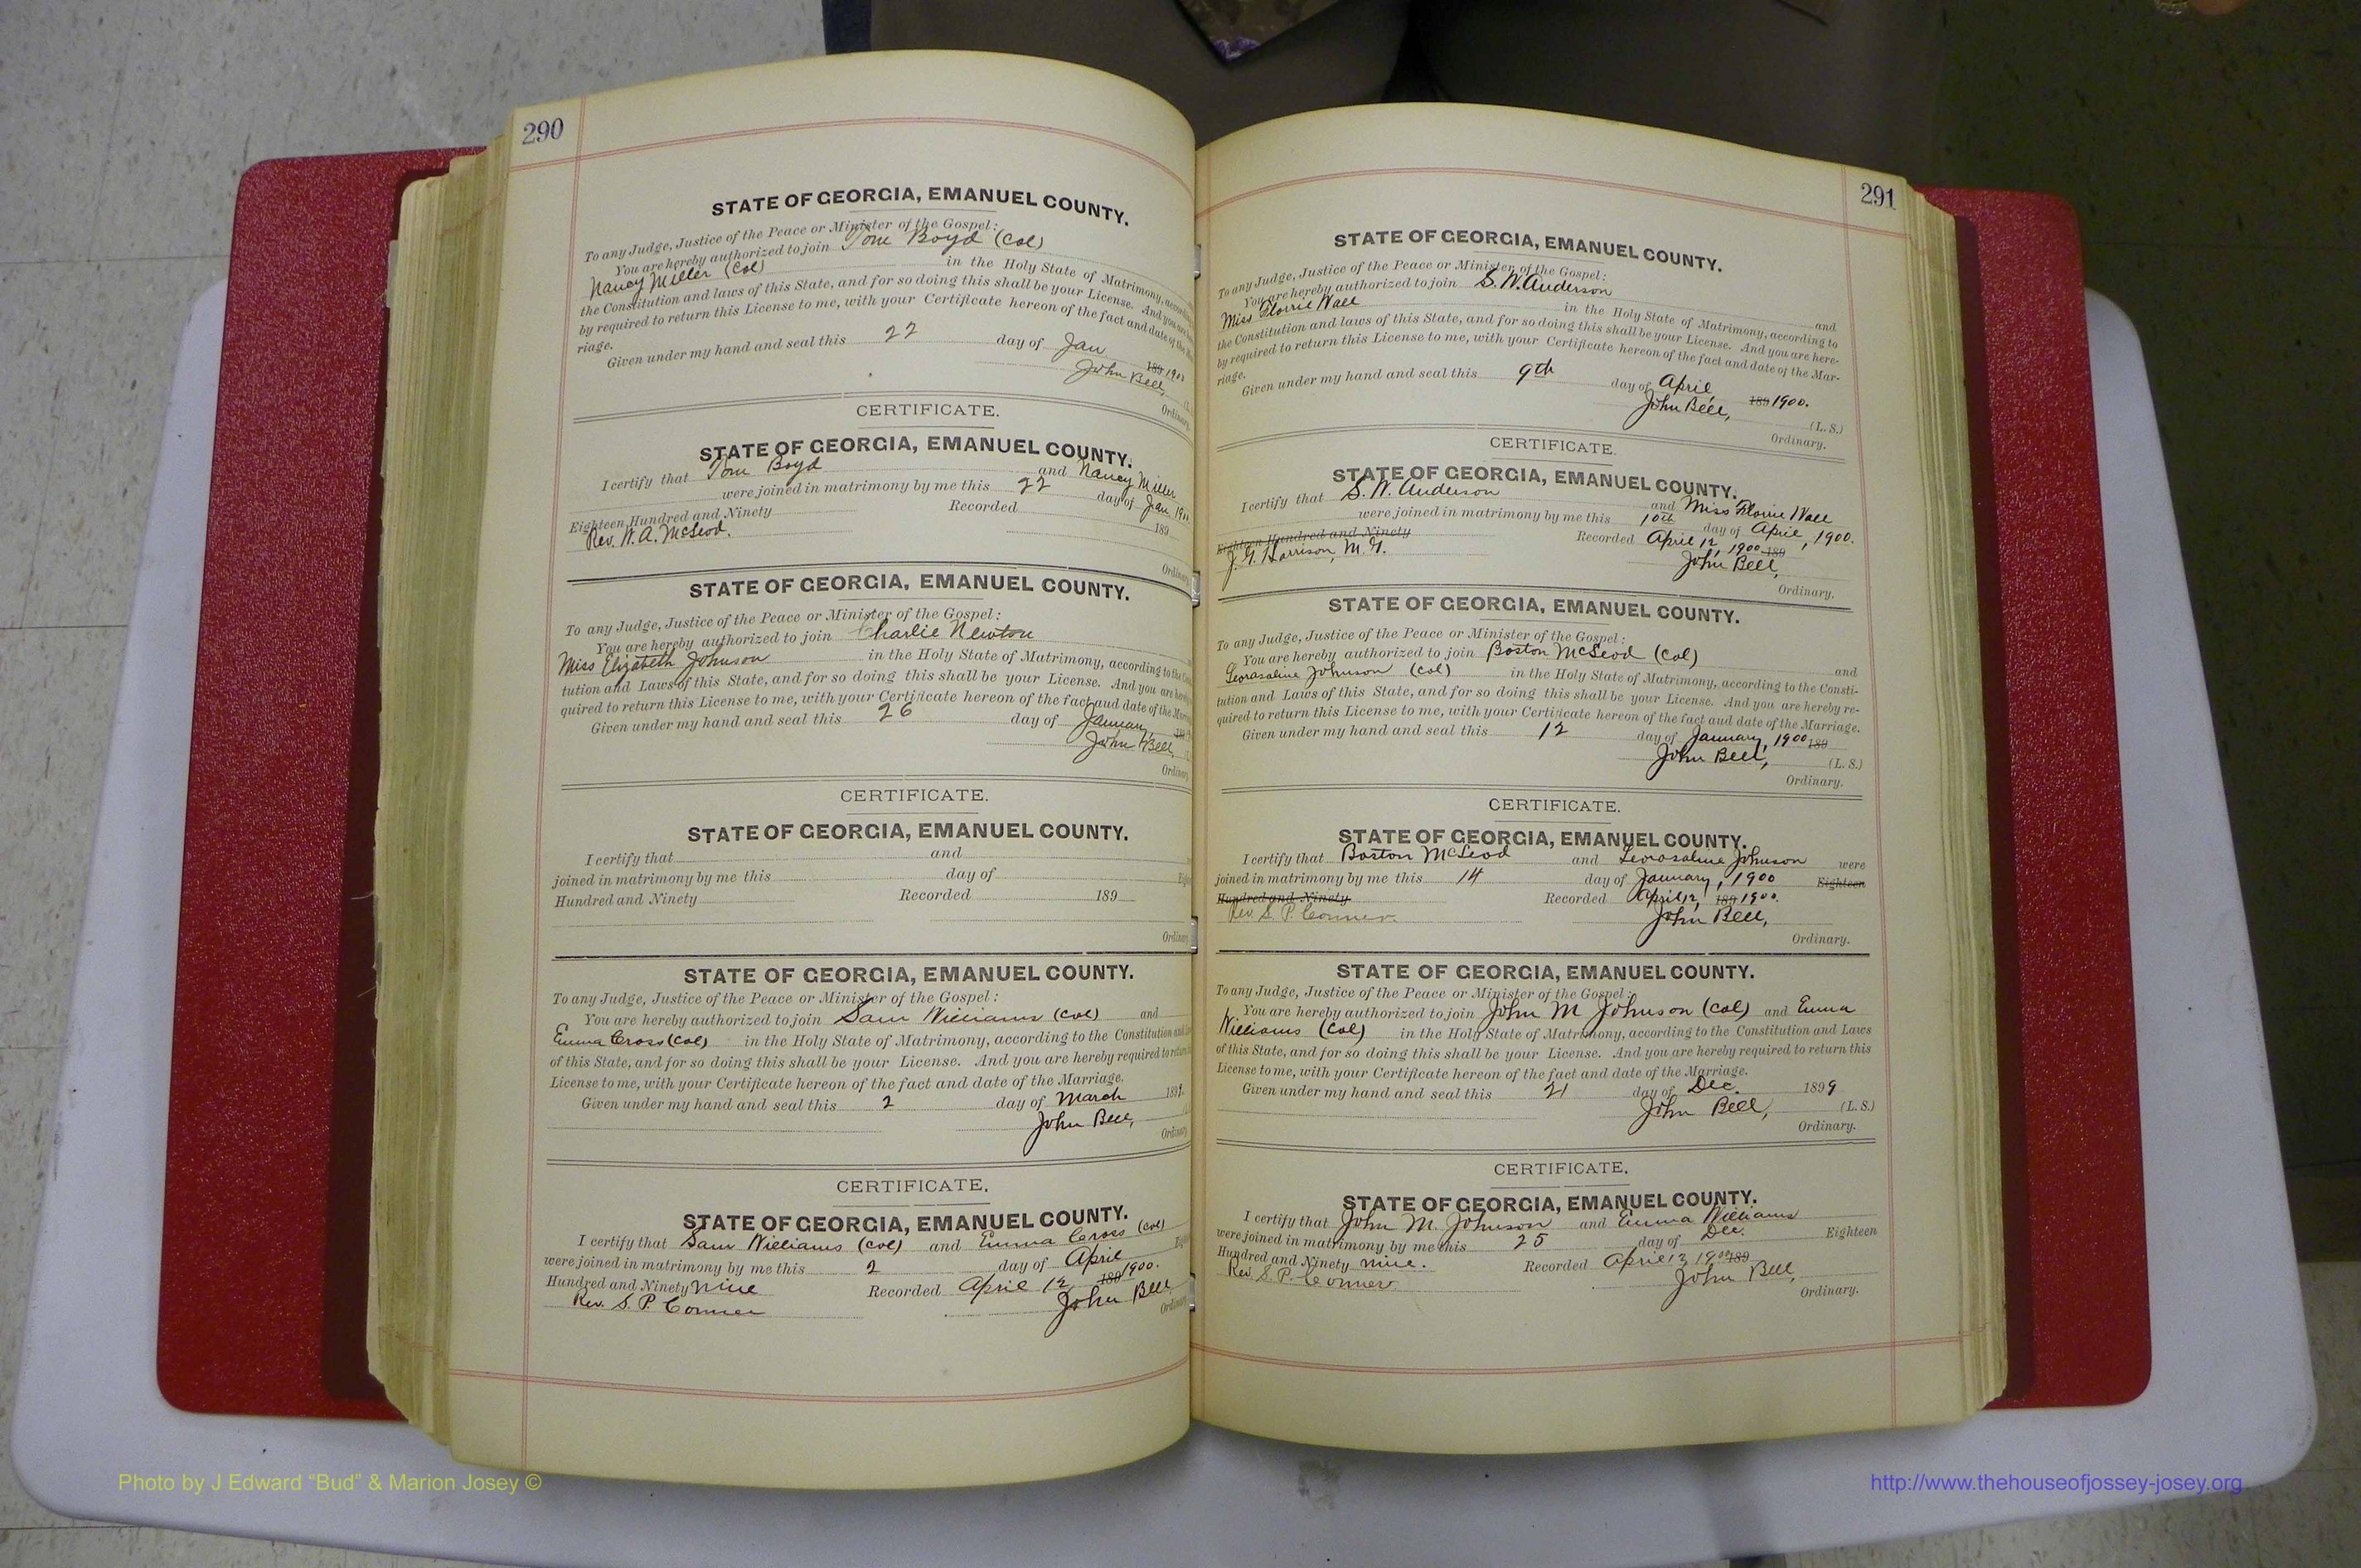 290
STATE OF GEORGIA, EMANUEL COUNTY.
To any Judge, Justice of the Peace or Minister of the Gospel:
You are hereby authorized to join Tom Boyd (Col)
Nancy Miller (Col) in the Holy State of Matrimony,
the Constitution and laws of this State, and for so doing this shall be your License. And you are
by required to return this License to me, with your Certificate hereon of the fact and date of the
riage.
Given under my hand and seal this 22 day of Jan
189 190
John Bell,
Ordinary.
CERTIFICATE.
STATE OF GEORGIA, EMANUEL COUNTY.
I certify that Tom Boyd and Nancy Miller
were joined in matrimony by me this 22 day of Jan
Eighteen Hundred and Ninety Recorded 189
Rev. W. A. McLeod.
Ordinary.
STATE OF GEORGIA, EMANUEL COUNTY.
To any Judge, Justice of the Peace or Minister of the Gospel:
You are hereby authorized to join Charlie Newton
Miss Elizabeth Johnson in the Holy State of Matrimony, according to the
tution and Laws of this State, and for so doing this shall be your License. And you are
quired to return this License to me, with your Certificate hereon of the fact and date of the
Given under my hand and seal this 26 day of January
John Bell,
Ordinary
CERTIFICATE.
STATE OF GEORGIA, EMANUEL COUNTY.
I certify that and
joined in matrimony by me this day of
Hundred and Ninety Recorded 189
Ordinary
STATE OF GEORGIA, EMANUEL COUNTY.
To any Judge, Justice of the Peace or Minister of the Gospel:
You are hereby authorized to join Sam Williams (Col) and
Emma Cross (Col) in the Holy State of Matrimony, according to the Constitution and
of this State, and for so doing this shall be your License. And you are hereby required to return
License to me, with your Certificate hereon of the fact and date of the Marriage.
Given under my hand and seal this 2 day of March 189
John Bell,
Ordinary
CERTIFICATE.
STATE OF GEORGIA, EMANUEL COUNTY.
I certify that Sam Williams (Col) and Emma Cross (Col)
were joined in matrimony by me this 2 day of April
Hundred and Ninety nine Recorded April 12 189 1900.
Rev. S. P. Conner John Bell
Ordinary
291
STATE OF GEORGIA, EMANUEL COUNTY.
To any Judge, Justice of the Peace or Minister of the Gospel:
You are hereby authorized to join S. W. Anderson and
Miss Florrie Wall in the Holy State of Matrimony, according to
the Constitution and laws of this State, and for so doing this shall be your License. And you are here-
by required to return this License to me, with your Certificate hereon of the fact and date of the Mar-
riage.
Given under my hand and seal this 9th day of April, 189 1900.
John Bell, (L. S.)
Ordinary.
CERTIFICATE.
STATE OF GEORGIA, EMANUEL COUNTY.
I certify that S. W. Anderson and Miss Florrie Wall
were joined in matrimony by me this 10th day of April, 1900.
Eighteen Hundred and Ninety Recorded April 12, 1900 189
J. G. Harrison, M. G. John Bell,
Ordinary.
STATE OF GEORGIA, EMANUEL COUNTY.
To any Judge, Justice of the Peace or Minister of the Gospel:
You are hereby authorized to join Boston McLeod (Col) and
Johnson (Col) in the Holy State of Matrimony, according to the Consti-
tution and Laws of this State, and for so doing this shall be your License. And you are hereby re-
quired to return this License to me, with your Certificate hereon of the fact and date of the Marriage.
Given under my hand and seal this 12 day of January, 1900 189
John Bell, (L. S.)
Ordinary.
CERTIFICATE.
STATE OF GEORGIA, EMANUEL COUNTY.
I certify that Boston McLeod and Johnson were
joined in matrimony by me this 14 day of January, 1900 Eighteen
Hundred and Ninety Recorded April 12, 189 1900.
Rev. S. P. Conner. John Bell,
Ordinary.
STATE OF GEORGIA, EMANUEL COUNTY.
To any Judge, Justice of the Peace or Minister of the Gospel:
You are hereby authorized to join John M Johnson (Col) and Emma
Williams (Col) in the Holy State of Matrimony, according to the Constitution and Laws
of this State, and for so doing this shall be your License. And you are hereby required to return this
License to me, with your Certificate hereon of the fact and date of the Marriage.
Given under my hand and seal this 21 day of Dec. 1899
John Bell, (L. S.)
Ordinary.
CERTIFICATE.
STATE OF GEORGIA, EMANUEL COUNTY.
I certify that John M. Johnson and Emma Williams
were joined in matrimony by me this 25 day of Dec. Eighteen
Hundred and Ninety nine. Recorded April 12, 1900 189
Rev. S. P. Conner. John Bell,
Ordinary.
Photo by J Edward “Bud” & Marion Josey ©
http://www.thehouseofjossey-josey.org